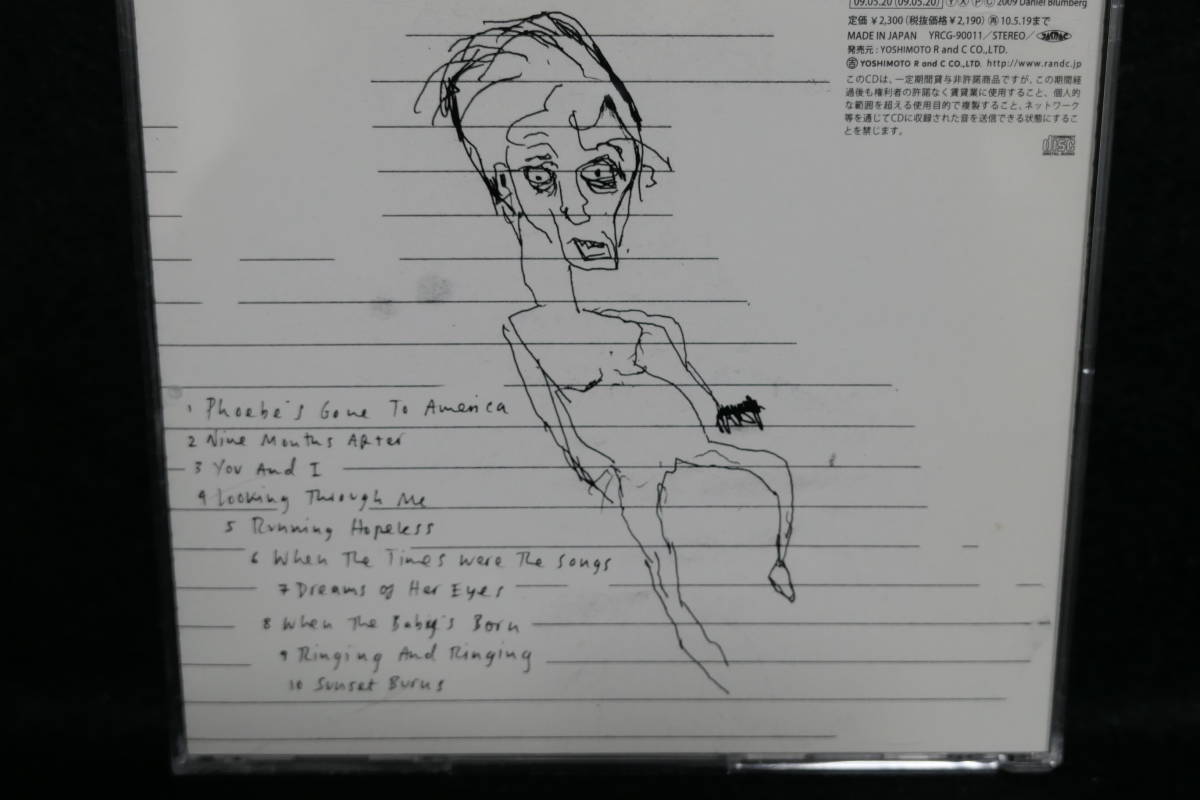 09.05.20 (09.05.20) Ⓨ Ⓧ Ⓟ Ⓒ 2009 Daniel Blumberg
定価 ¥2,300 (税抜価格 ¥2,190) 再 10.5.19まで
MADE IN JAPAN YRCG-90011/STEREO/
発売元:YOSHIMOTO R and C CO.,LTD.
YOSHIMOTO R and C CO.,LTD. http://www.randc.jp
このCDは、一定期間貸与非許諾商品ですが、この期間経
過後も権利者の許諾なく賃貸業に使用すること、個人的
な範囲を超える使用目的で複製すること、ネットワーク
等を通じてCDに収録された音を送信できる状態にするこ
とを禁じます。
disc
1 Phoebe's Gone To America
2 Nine Months After
3 You And I
4 Looking Through Me
5 Running Hopeless
6 When The Times Were The Songs
7 Dreams of Her Eyes
8 When The Baby's Born
9 Ringing And Ringing
10 Sunset Burns